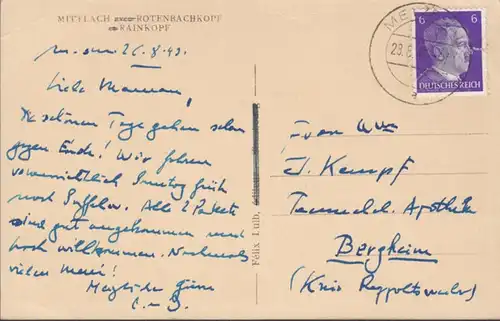 MITTLACH ROTENBACHKOPF
RAINKOPF
26.8.43.
Liebe Maman,
Die schönen Tage gehen schon
gegen Ende! Wir fahren
voraussichtlich Sonntag früh
nach Sufflen. Alle 2 Pakete
sind gut angekommen und
hoch willkommen. Nochmals
vielen merci!
Herzliche Grüsse
Félix Luib,
ME
23.8.
6 6
DEUTSCHES REICH
Frau Wwe
J. Kempf
Apotheke
Bergheim
(Kreis Rappoltsweiler)